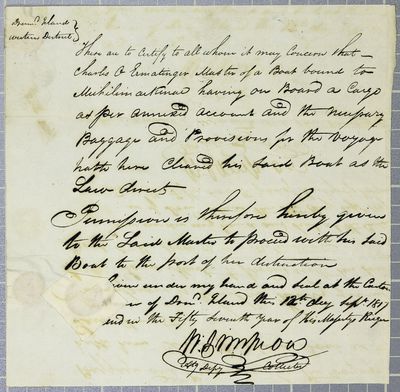 Drum.d Island }
Western District }
These are to Certify to all whom it may Concern that
Charles O Ermatinger Master of a Boat bound to
Michilimackinac having on Board a Cargo
as per annexed account and the necessary
Baggage and Provisions for the Voyage
hath here Cleared his said Boat as the
Law direct
Permission is therefore hereby given
to the Said Master to proceed with his said
Boat to the port of her destination
Given under my hand and seal at the Custom
of Drm.d Island this 12th day Sept.r 1817
and in the Fifty Seventh Year of his Majestys Reign
Collector